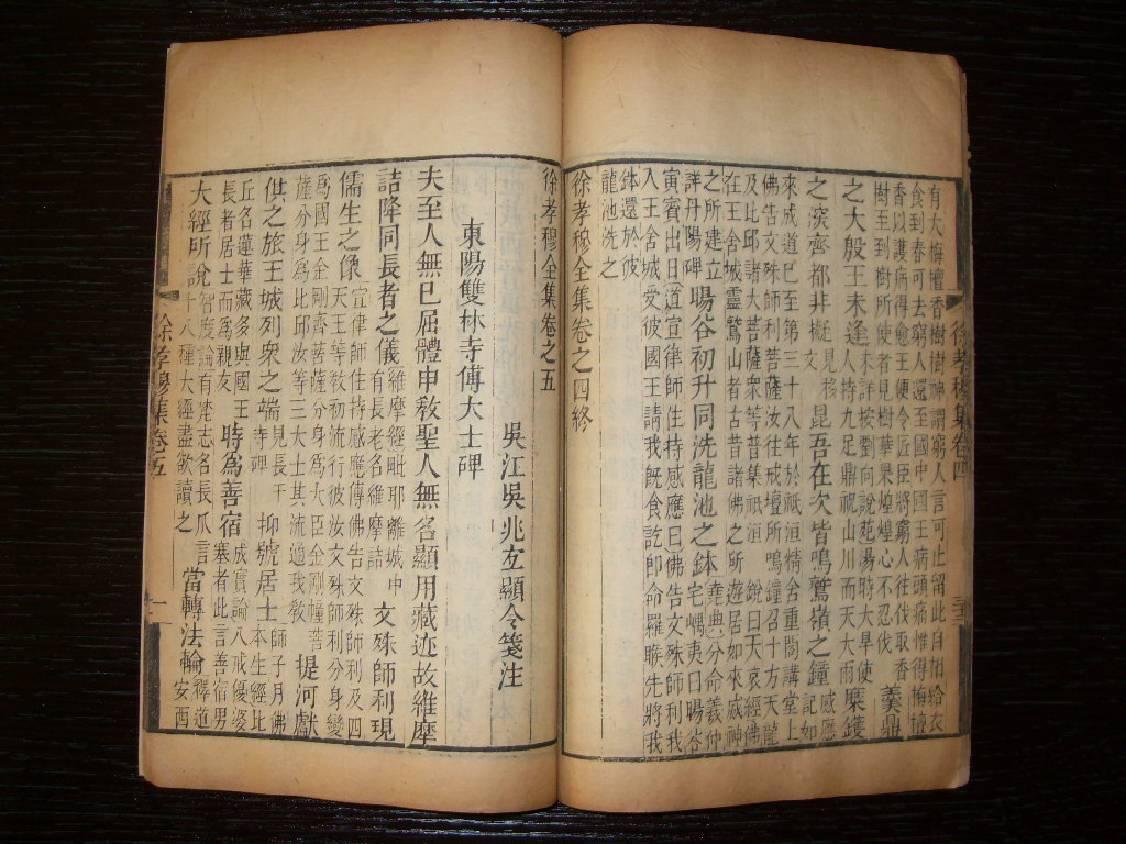 有大栴檀香樹樹神謂窮人言可止留此自相給衣
食到春可去窮人還至國中國王病頭痛惟得栴檀
香以護病得愈王便令匠臣將窮人往伐取香
樹至到樹所使者見樹華果煌煌心不忍伐 羹鼎
之大殷王未逢 未詳按劉向說苑湯時大旱使人持九足鼎祝山川而天大雨 糜鑊
之濱齊都非擬 見移文 昆吾在次皆鳴鷲嶺之鐘 感應記如
來成道已至第三十八年於祇洹精舍重閣講堂上
佛告文殊師利菩薩汝往戒壇所鳴鐘召十方天龍
及比邱諸大菩薩衆等普集祇洹 銳曰天哀經佛
在王舍城靈鷲山者古昔諸佛之所遊居如來威神
之所建立詳丹陽碑 暘谷初升同洗龍池之鉢 堯典分命羲仲宅嵎夷曰暘谷
寅賓出日道宣律師住持感應曰佛告文殊師利我
入王舍城受彼國王請我旣食訖卽命羅睺先將我
鉢還於彼
龍池洗之
徐孝穆全集卷之四終
徐孝穆集卷四
徐孝穆全集卷之五
吳江吳兆宜顯令箋注
東陽雙林寺傅大士碑
夫至人無已屈體申敎聖人無名顯用藏迹故維摩
詰降同長者之儀 維摩經毗耶離城中有長老名維摩詰 文殊師利現
儒生之像 宣律師住持感應傳佛告文殊師利及四天王等敎初流行彼汝文殊師利分身變
爲國王金剛齊菩薩分身爲大臣金剛幢菩
薩分身爲比邱汝等三大士其流通我敎 提河獻
供之旅王城列衆之端 見長干寺碑 抑號居士 師子月佛本生經比
丘名蓮華藏多與國王
長者居士而爲親友 時爲善宿 成實論八戒優婆塞者此言善宿男
大經所說 智度論有梵志名長爪言十八種大經盡欲讀之 當轉法輪 釋道安西
徐孝穆集卷五
一